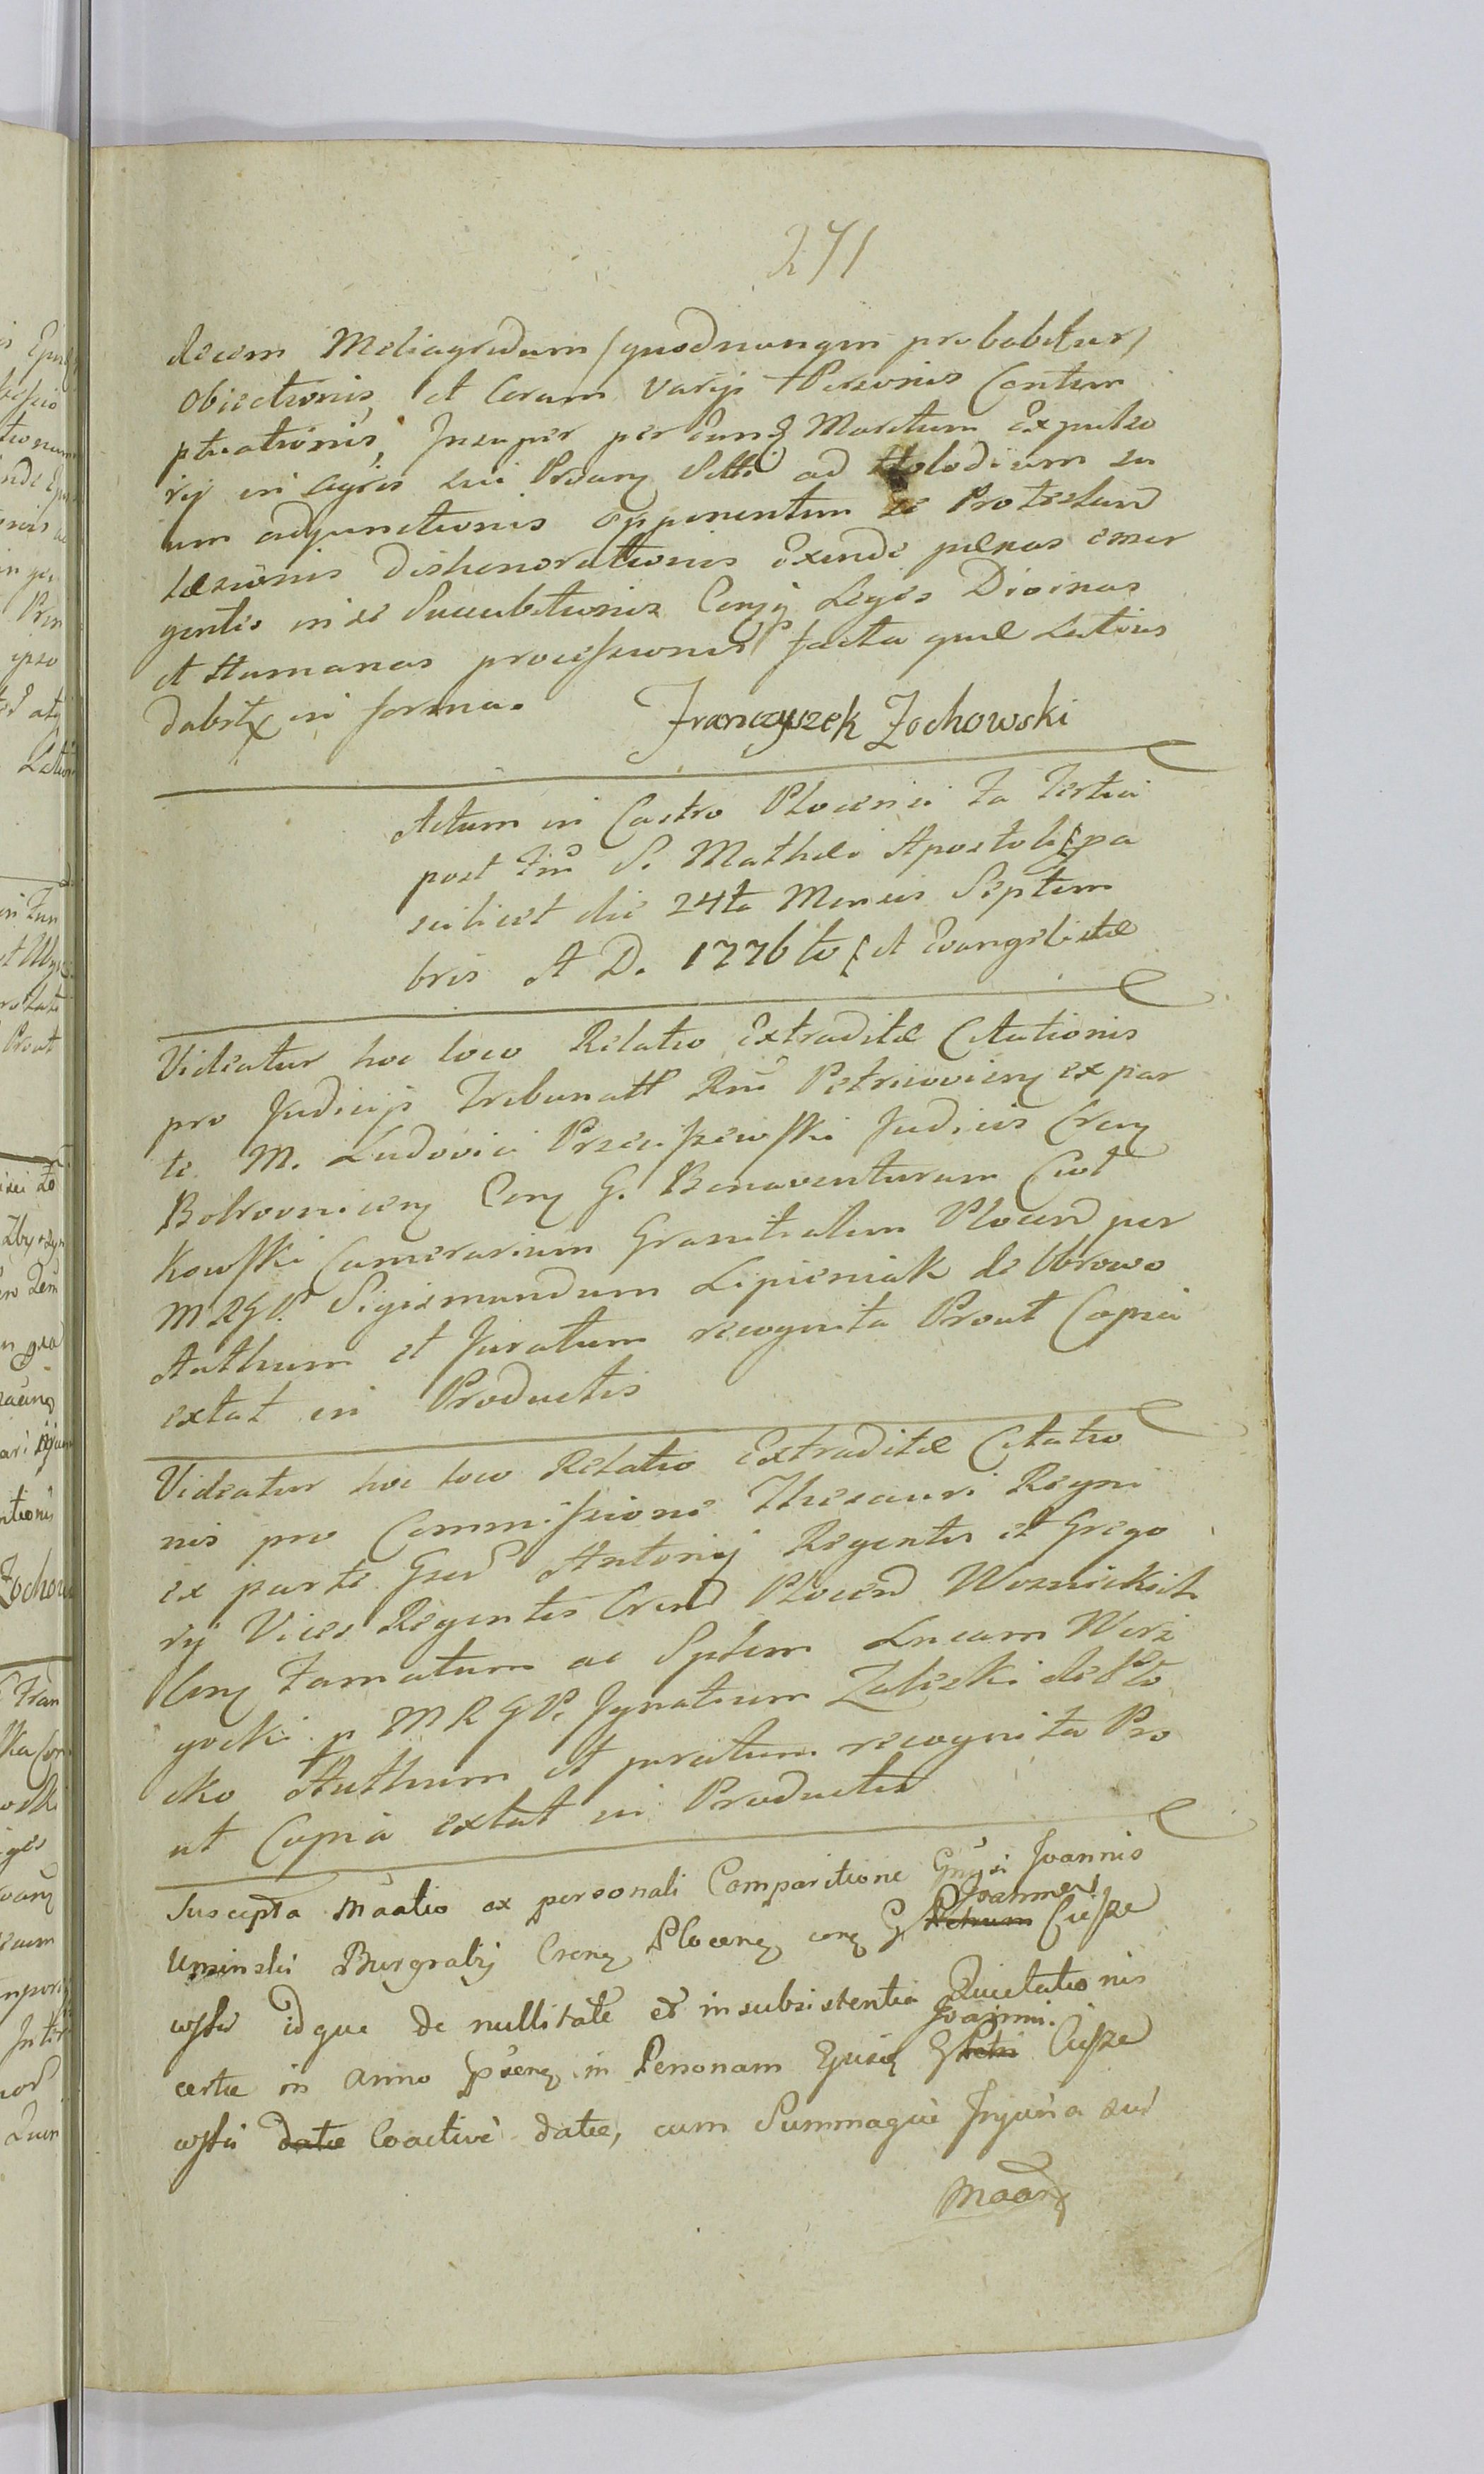 271
decem Meliagridum /quodnunqm probabitur/
Obiectionis, et Coram varijs Personis Contem
ptuationis, Insuper per Eund Maritum Expulso
rij in agris sui Prdiam Setti ad Holodium su
um adjunctionis opponentem se Protestand
Læsionis dishonorationis Exinde pænas emer
gentes in se Succubitionis Conjq Leges Divinas
et Humanas processionis facta quæ Latius
dabitx in forma.
Franczyszek Zochowski
Actum in Castro Plocensi Fa Tertia
post Ftm S. Mathæi Apostoli [pa
scilicet die 24ta Mensis Septem
bris A D. 1776to [et Evangelistæ
Videatur hoc loco Relatio Extraditæ Citationis
pro Judicijs Tribunatt Rni Petricovieng ex par
te M. Ludovici Przeciszewski Judicis Creng
Bobrovniceng Cong G. Benaventuram Cwi
kowski Camerarium Granitialem Plocend per
MRGP. Sigismundum Lipieniak de Obrowo
Authum et Juratum recognita Prout Copia
extat in Productis
Videatur hoc loco Relatio Extraditæ Citatio
nis pro Commissione Thesauri Regni
ex parte Gsed Antonij Regentis et Grego
rij Vices Regentis Crend Plocend Woznickich
Cong Famatum ac Spblem Lucam Wirz
gocki p MRGP. Ignatium Zaliski de Plo
cko Authum et juratum recognita Pro
ut Copia extat in Productis
Suscepta Maatio ex personali Comparitione Gnosi Joannis
Uminski Burgrabij Creng, Ploceng cong G Petrum Joannem CieSze
wski idque de nullitate et in subsistentia Quietationis
certæ in anno Pseng in Personam Ejusdg G Petri Joannis. Cieſze
wski datæ Coactivè datæ, cum Summaquè Injuria sui
Maanx